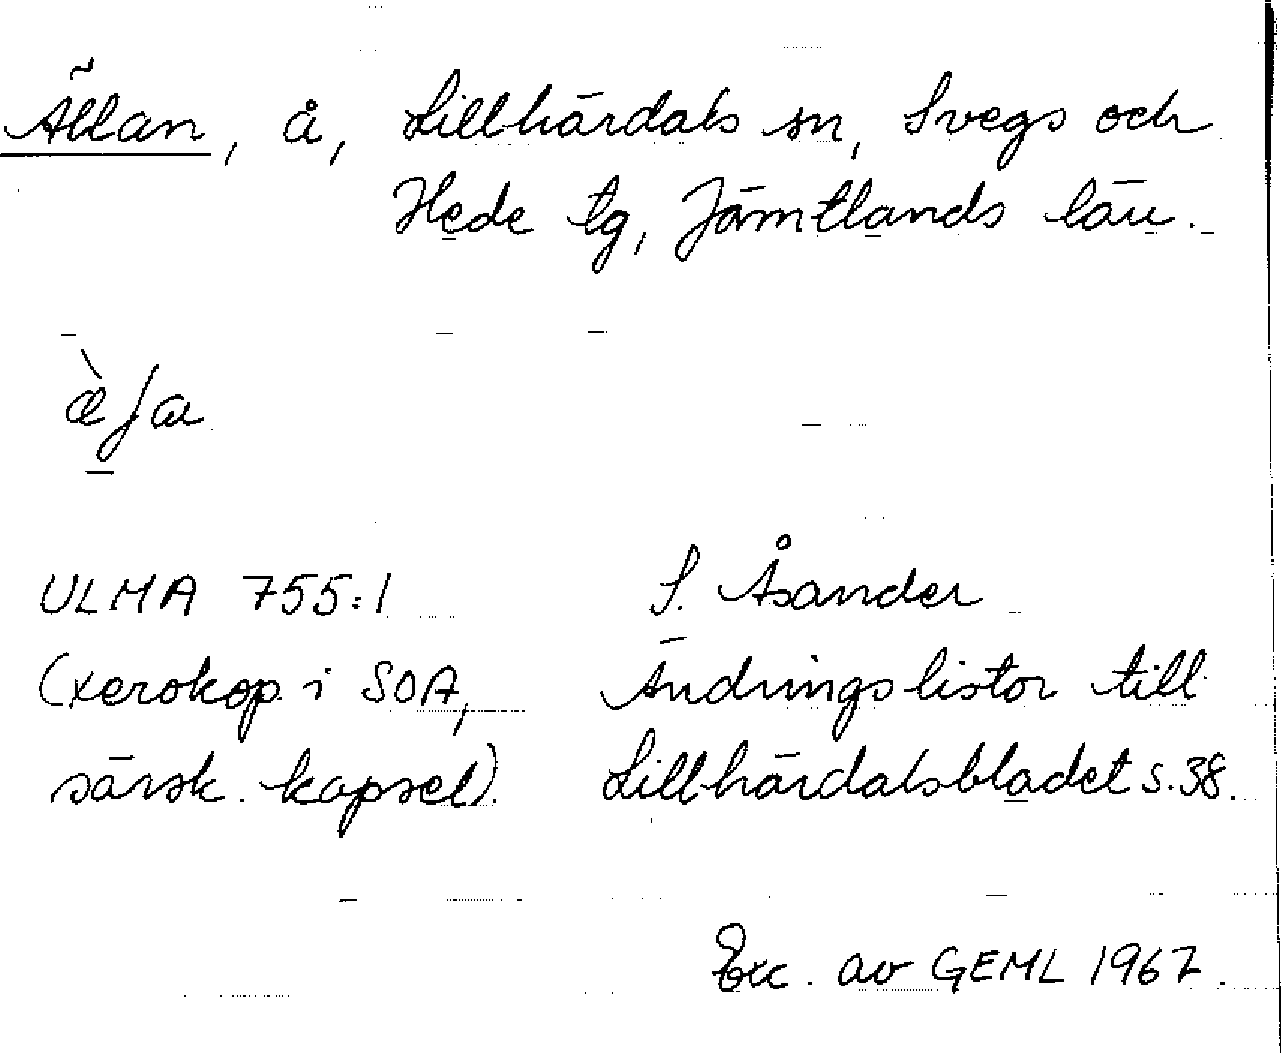 Ällan, å, Lillhärdals sn, Svegs och
Hede tg, Jämtlands län.
ULMA 755:1
(xerokop i SOA,
särsk. kapsel).
S. Åsander
Ändringslistor till
Lillhärdalsbladet s. 38.
Exc. av GEML 1967.